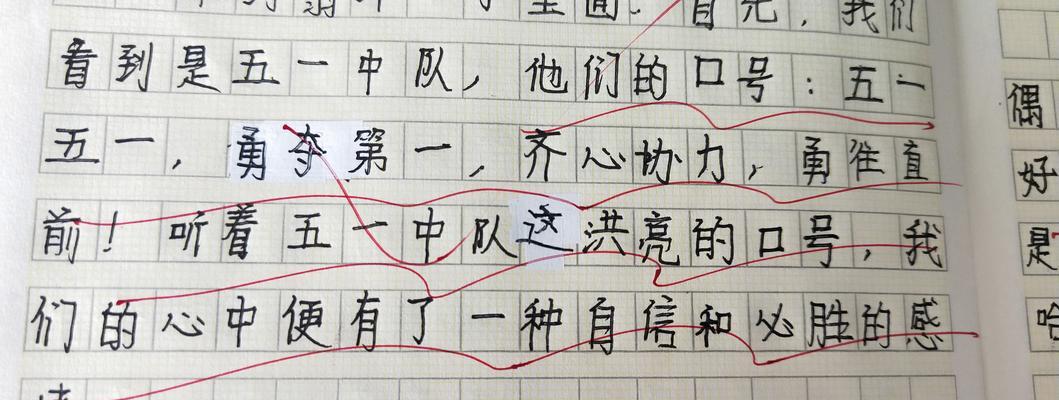 里面.首先,我们
看到是五一中队,他们的口号:五一
五一,勇夺第一,齐心协力,勇往直
前!听着五一中队这洪亮的口号,我
们的心中便有了一种自信和必胜的感
偶
好
是